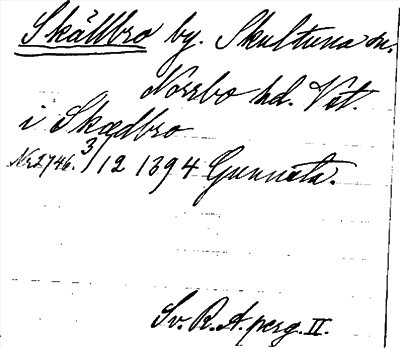 Skällbro by. Skultuna sn.
Norrbo hd. Vstl.
i Skædbro
Nr 2746. 3/12 1394 Gunneta.
Sv. R. A. perg. II.